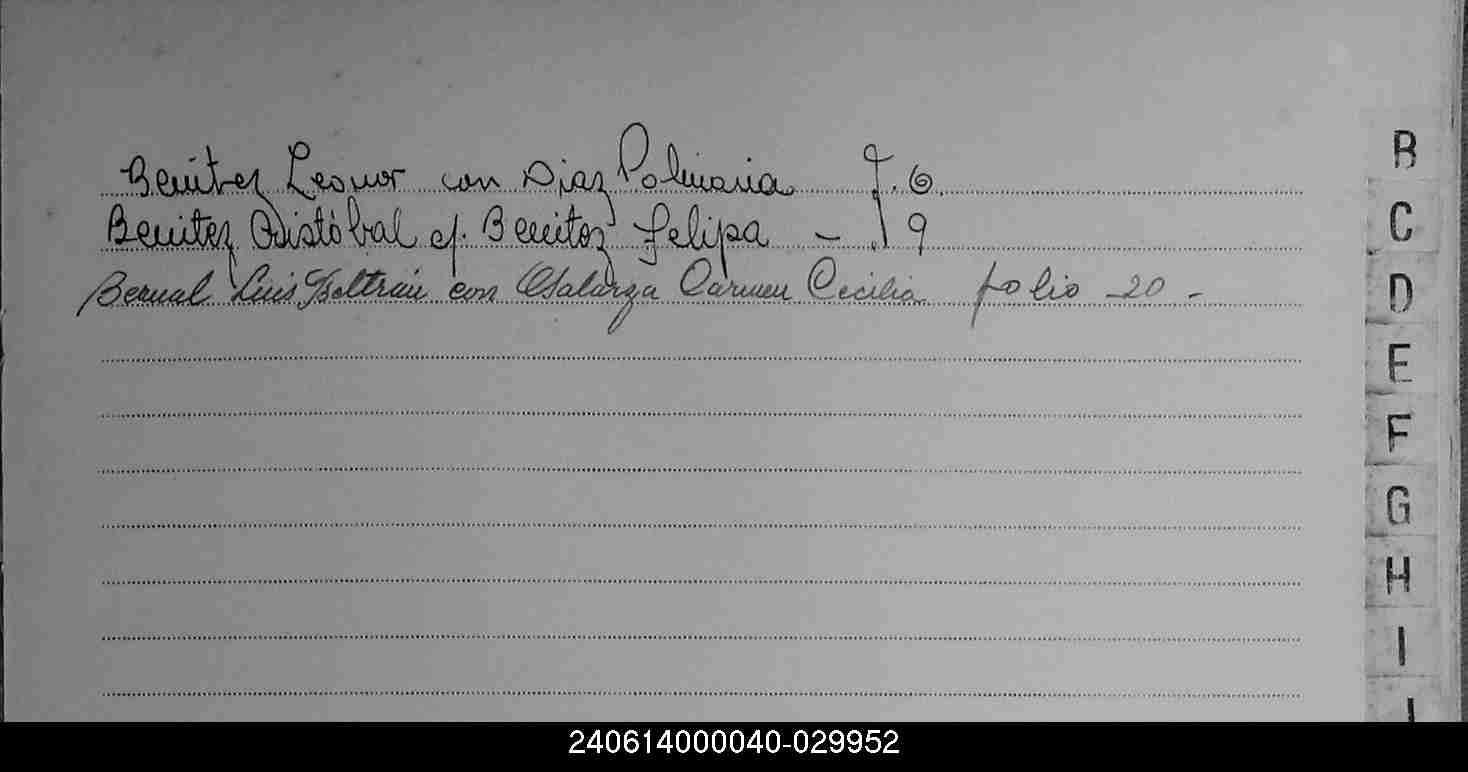 Benitez Leonor con Diaz Polinaria f. 6
Benitez Cristóbal c/. Benitez Felipa - f. 9
Bernal Luis Beltran con Galarza Carmen Cecilia folio 20 -
B
C
D
E
F
G
H
I
J
240614000040-029952